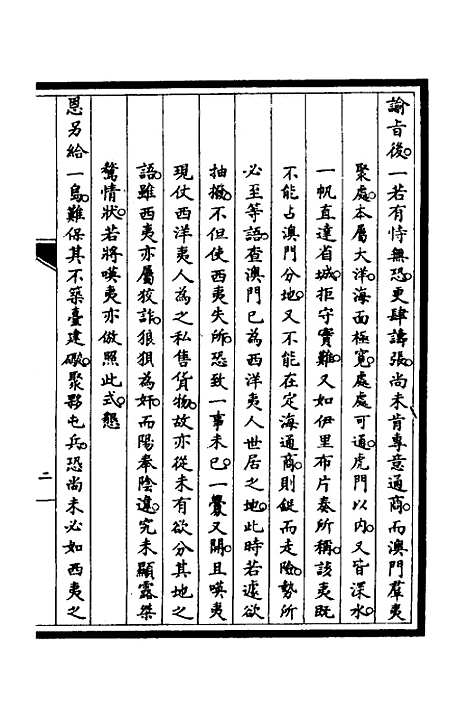 諭旨後。一若有恃無恐。更肆譸張。尚未肯專意通商。而澳門羣夷
聚處。本屬大洋。海面極寬。處處可通。虎門以內。又皆深水。
一帆直達省城。拒守實難。又如伊里布片奏所稱。該夷既
不能占澳門分地。又不能在定海通商。則鋌而走險。勢所
必至等語。查澳門已為西洋夷人世居之地。此時若遽欲
抽撥。不但使西夷失所。恐致一事未已。一釁又開。且暎夷
現仗西洋夷人為之私售貨物。故亦從未有欲分其地之
語。雖西夷亦屬狡詐。狼狽為奸。而陽奉陰違。究未顯露桀
驁情狀。若將暎夷亦倣照此式。懇
恩另給一島。難保其不築臺建礮。聚夥屯兵。恐尚未必如西夷之
二